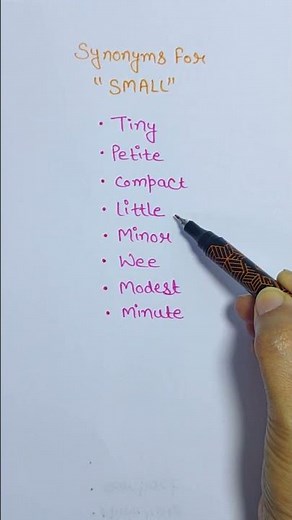 Synonyms for
"SMALL"
• Tiny
• Petite
• Compact
• Little
• Minor
• Wee
• Modest
• Minute